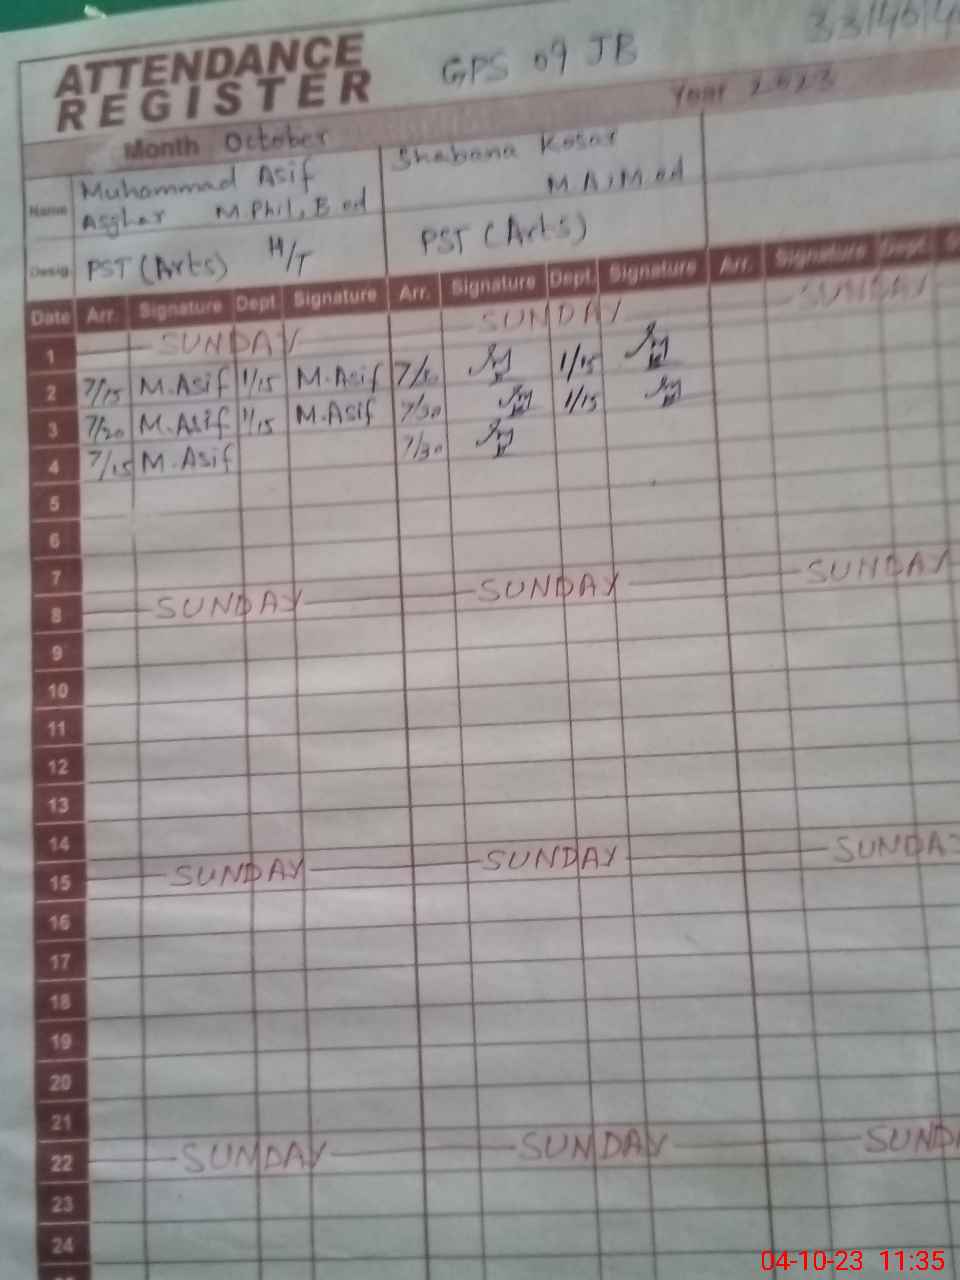 ATTENDANCE REGISTER
GPS 09 JB
Month October
Year 2023
Name
Muhammad Asif
Asghar M.Phil, B.ed
Shabana Kosar
M.A, M.ed
Desig.
PST (Arts) H/T
PST (Arts)
Date Arr. Signature Dept. Signature Arr. Signature Dept. Signature Arr. Signature Dept.
1 SUNDAY SUNDAY SUNDAY
2 7/15 M.Asif 1/15 M.Asif 1/15
3 7/20 M.Asif 1/15 M.Asif 7/30 1/15
4 7/15 M.Asif 7/30
5
6
7
8 SUNDAY SUNDAY SUNDAY
9
10
11
12
13
14
15 SUNDAY SUNDAY SUNDA
16
17
18
19
20
21
22 SUNDAY SUNDAY SUND
23
24
04-10-23 11:35